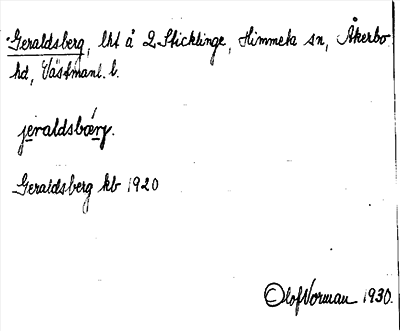 Geraldsberg, lht å 2 Sticklinge, Himmeta sn, Åkerbo
hd, Västmanl. l.
jeraldsbærj.
Geraldsberg kb 1920
Olof Norman 1930.